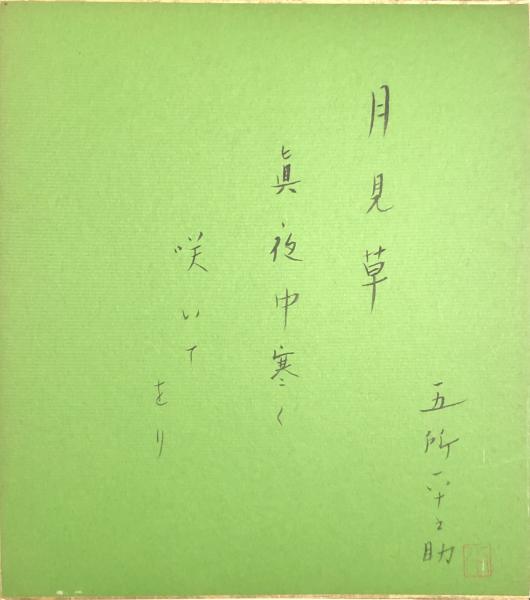 月見草
眞夜中寒く
咲いて
をり
五所平之助